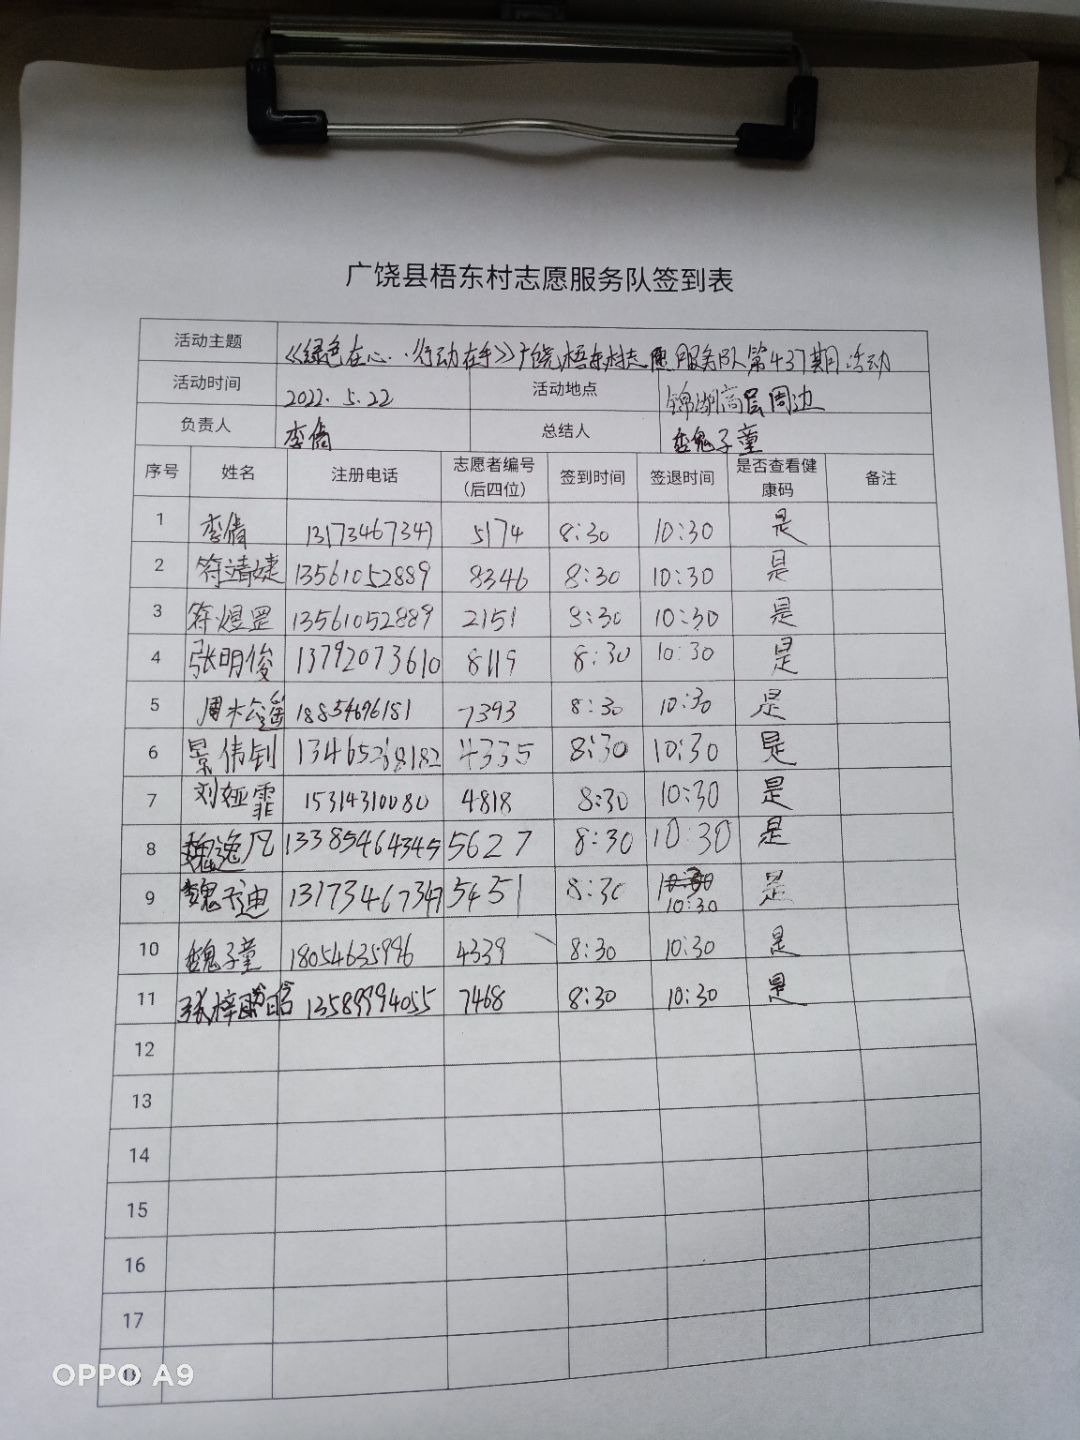 广饶县梧东村志愿服务队签到表
活动主题 《绿色在心··行动在手》广饶梧东村志愿服务队第437期活动
活动时间 2022.5.22 活动地点 锦湖高层周边
负责人 李倩 总结人 魏子童
序号 姓名 注册电话 志愿者编号（后四位） 签到时间 签退时间 是否查看健康码 备注
1 李倩 13173467347 5174 8:30 10:30 是
2 符靖婕 13561052889 8346 8:30 10:30 是
3 符煜罡 13561052889 2151 8:30 10:30 是
4 张明俊 13792073610 8119 8:30 10:30 是
5 18854696181 7393 8:30 10:30 是
6 景伟钊 4335 8:30 10:30 是
7 刘娅霏 15314310080 4818 8:30 10:30 是
8 魏逸凡 13385464345 5627 8:30 10:30 是
9 魏子迪 13173467347 5451 8:30 10:30 是
10 魏子童 18054635996 4339 8:30 10:30 是
11 13589994055 7468 8:30 10:30 是
12
13
14
15
16
17
18
OPPO A9